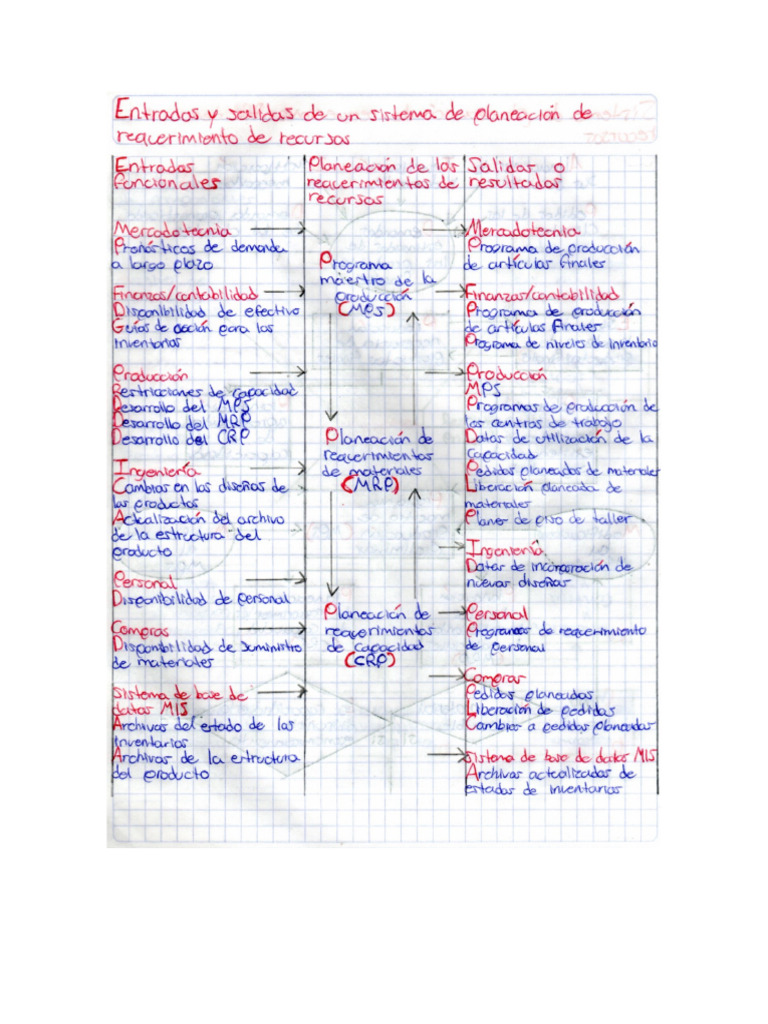 Entradas y salidas de un sistema de planeación de
requerimiento de recursos
Entradas
funcionales
Mercadotecnia
Pronósticos de demanda
a largo plazo
Finanzas/contabilidad
Disponibilidad de efectivo
Guías de acción para los
inventarios
Producción
Restricciones de capacidad
Desarrollo del MPS
Desarrollo del MRP
Desarrollo del CRP
Ingeniería
Cambios en los diseños de
los productos
Actualización del archivo
de la estructura del
producto
Personal
Disponibilidad de personal
Compras
Disponibilidad de suministro
de materiales
Sistema de base de
datos MIS
Archivos del estado de los
inventarios
Archivos de la estructura
del producto
Planeación de los
requerimientos de
recursos
Programa
maestro de la
producción
(MPS)
Planeación de
requerimientos
de materiales
(MRP)
Planeación de
requerimientos
de capacidad
(CRP)
Salidas o
resultados
Mercadotecnia
Programa de producción
de artículos finales
Finanzas/contabilidad
Programa de producción
de artículos finales
Programa de niveles de inventario
Producción
MPS
Programas de producción de
los centros de trabajo
Datos de utilización de la
capacidad
Pedidos planeados de materiales
Liberación planeada de
materiales
Planes de piso de taller
Ingeniería
Datos de incorporación de
nuevos diseños
Personal
Programas de requerimiento
de personal
Compras
Pedidos planeados
Liberación de pedidos
Cambios a pedidos planeados
Sistema de base de datos MIS
Archivos actualizados de
estados de inventarios